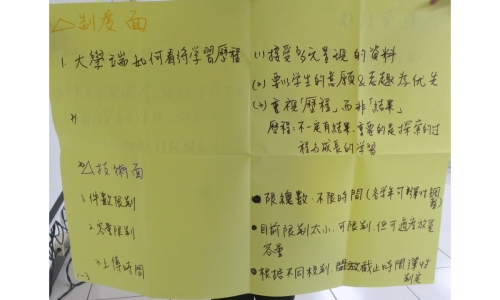 △制度面
1. 大學端如何看待學習歷程
(1) 接受多元呈現的資料
(2) 要以學生的意願&志趣為優先
(3) 重視「歷程」而非「結果」
歷程:不一定有結果,重要的是探索的過
程與成長的學習
△技術面
1. 件數限制
2. 容量限制
3. 上傳時間
• 限總數,不限時間(各學年可彈性調整)
• 目前限制太小,可限制,但可適度放寬
容量
• 根據不同校制,開放截止時間彈性
制定
1-3